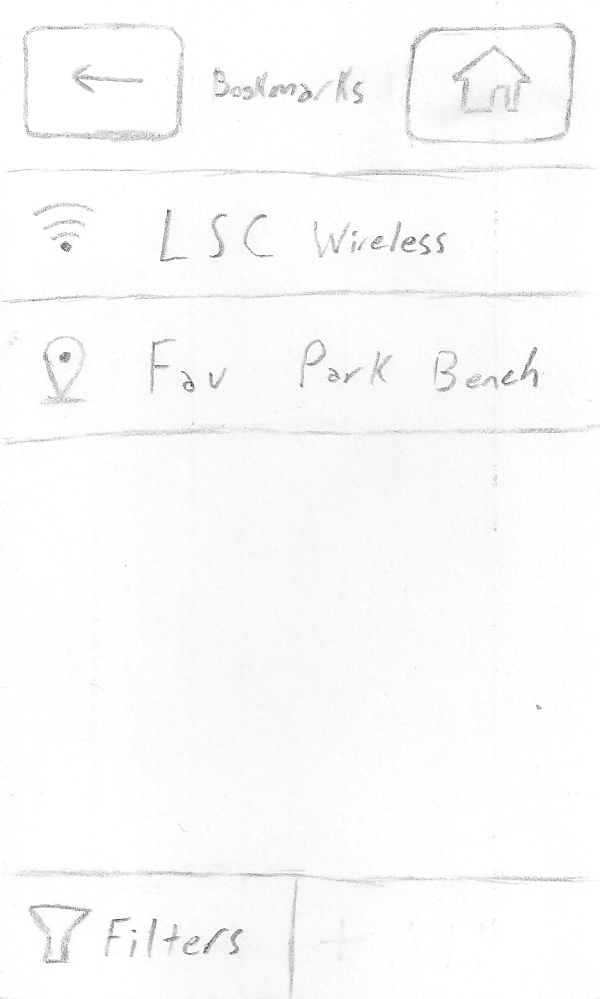 Bookmarks
LSC Wireless
Fav Park Bench
Filters